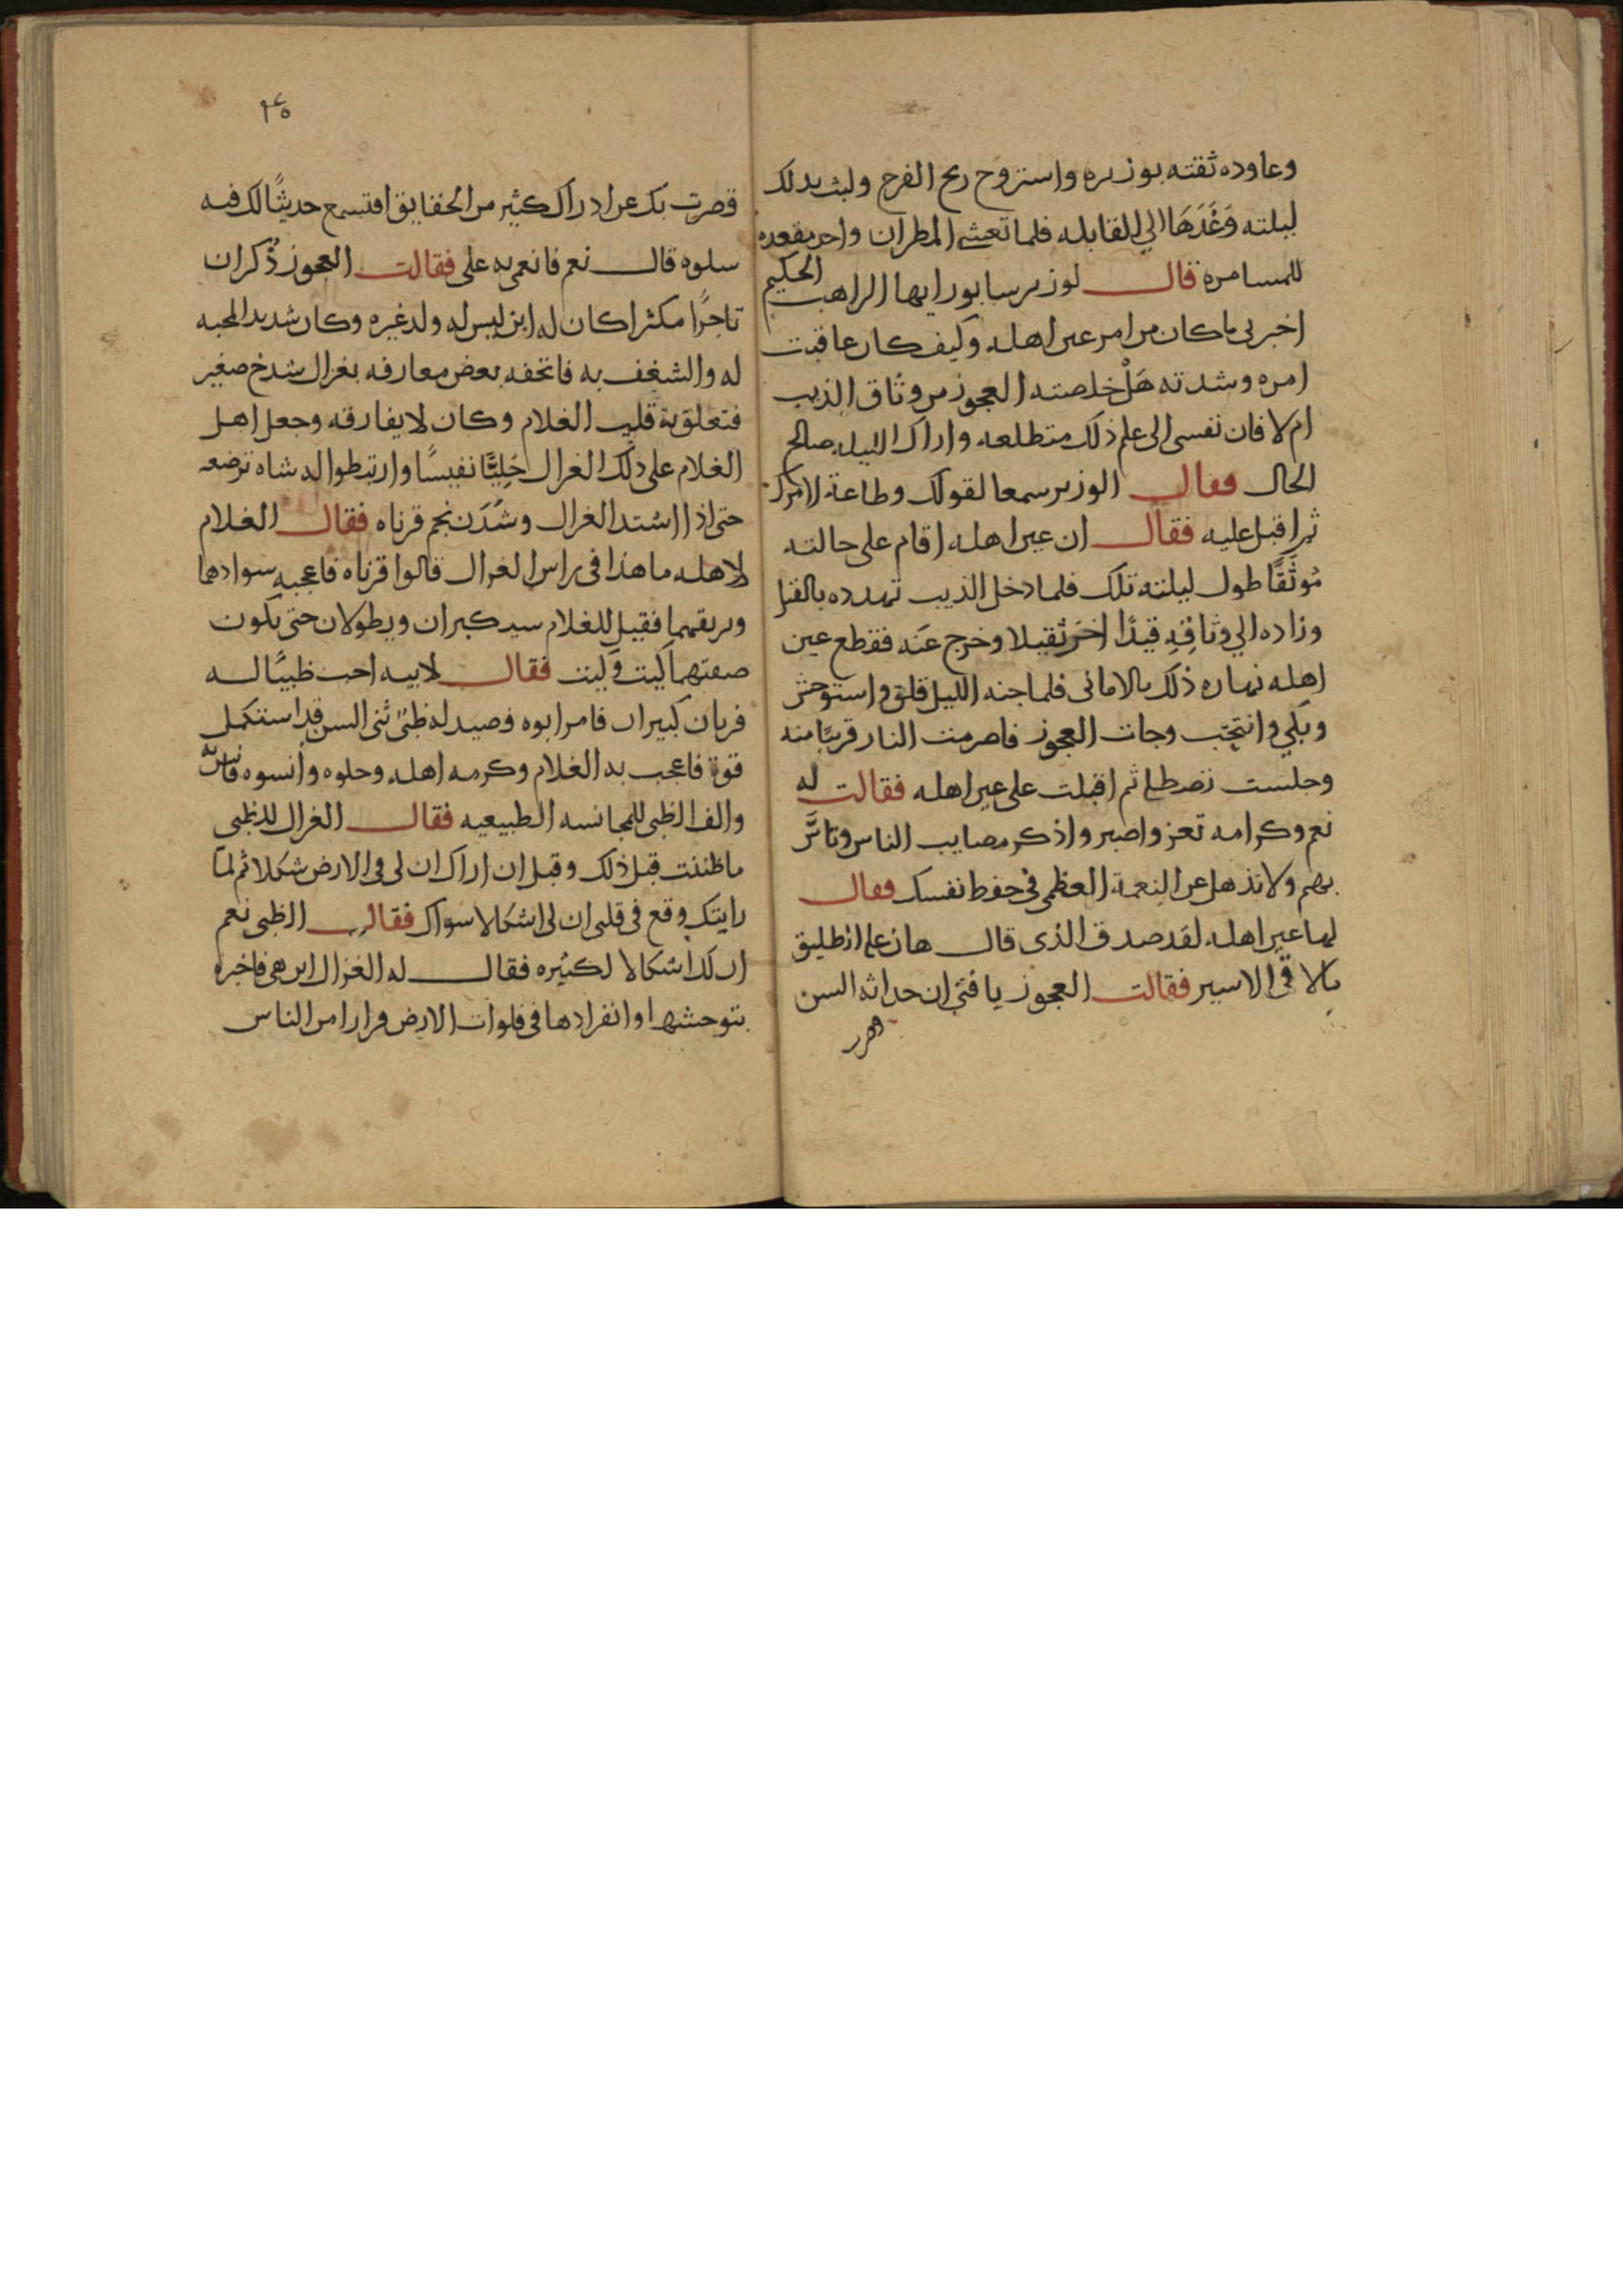 وعاوده ثقته بوزيره واستروح ريح الفرج ولبث بدلك
ليلته وَغَدَهَا الي القابله فلما تعشى المطران واخذ مقعده
للمسامرة قال لوزير سابور ايها الراهب الحكيم
اخبرني ماكان من امر عين اهله وكيف كان عاقبت
امره وشدته هَلْ خلصته العجوز من وثاق الذيب
ام لا فان نفسى الى علم ذلك متطلعه واراك الليله صالح
الحال فقال الوزير سمعا لقولك وطاعة لامرك
ثم اقبل عليه فقال ان عين اهله اقام على حالته
مُوثَقًا طول ليلته تلك فلما دخل الذيب تهدده بالقتل
وزاده الي وثاقِهِ قيدًا اخر ثقيلا وخرج عَنه فقطع عين
اهله نهاره ذلك بالامانى فلما جنه الليل قلق واستوحش
وبكي وانتحَب وجات العجوز فاضرمت النار قريبًا منه
وجلست تصطلى ثم اقبلت على عين اهله فقالت له
نعم وكرامه تعز واصبر واذكر مصايب الناس وتاسَّ
بهم ولا تذهل عن النعمة العظمى فى حفظ نفسك فقال
لها عين اهله لقد صدق الذى قال هان على الطليق
ما لاقى الاسير فقالت العجوز يا فتى ان حداثه السن
٢٤٥
قصرت بك عن ادراك كثير من الحقايق افتسمع حديثًا لك فيه
سلوه قال نعم فانعمى به على فقالت العجوز ذُكر ان
تاجرًا مكثرا كان له ابن ليس له ولد غيره وكان شديد المحبه
له والشغف به فاتحفه بعض معارفه بغزال شدخ صغير
فتعلق به قلب الغلام وكان لا يفارقه وجعل اهل
الغلام على ذلك الغزال حَلِيًّا نفيسًا وارتبطوا له شاه ترضعه
حتى اذا اشتد الغزال وشَدَن نجم قرناه فقال الغلام
لاهله ما هذا فى راس الغزال قالوا قرناه فاعجبه سوادهما
وبريقهما فقيل للغلام سيكبران ويطولان حتى تكون
صفتهما كَيت وكَيت فقال لابيه احب ظبيًا له
قرنان كبيران فامر ابوه فصيد له ظبىٌ ثنى السن قد استكمل
قوة فاعجب به الغلام وكرمه اهله وحلوه وانسوه فانس
والف الظبى للمجانسه الطبيعيه فقال الغزال للظبى
ما ظننت قبل ذلك وقبل ان اراك ان لى فى الارض شكلا ثم لما
رايتك وقع فى قلبى ان لى اشكالا سواك فقال الظبى نعم
ان لك اشكالا لكثيره فقال له الغزال اين هى فاخبره
بتوحشها وانفرادها فى فلوات الارض فرارا من الناس